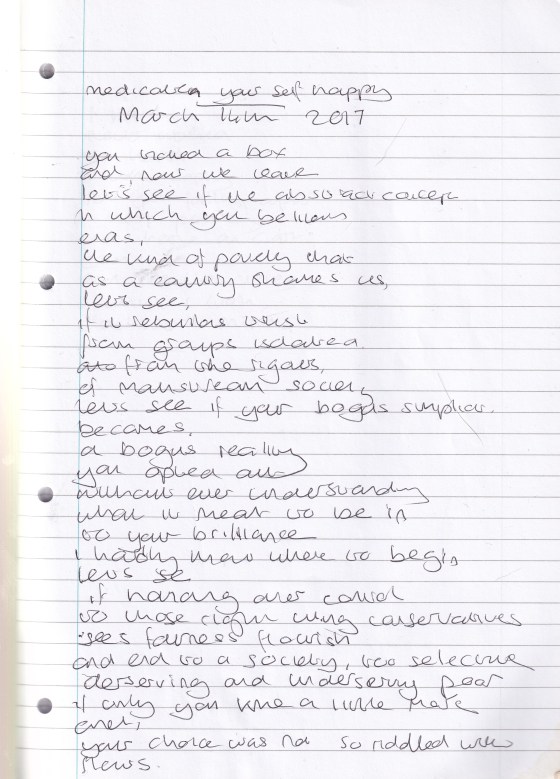 medicated your self happy
March 2017
you ticked a box
and now we leave
let's see if the abstract concept
in which you believe
ends,
the kind of poverty that
as a country shames us,
let's see,
if it rebuilds trust
from groups isolated
from the rigours,
of mainstream society
let's see if your bogus
becomes,
a bogus reality
you opted out
without ever understanding
what it meant to be in
to your brilliance
I hardly know where to begin
let's se
if handing over control
to those right wing conservatives
sees fairness flourish
and end to a society, too selective
deserving and underserving poor
if only you knew a little more
your choice was not so riddled with
flaws.